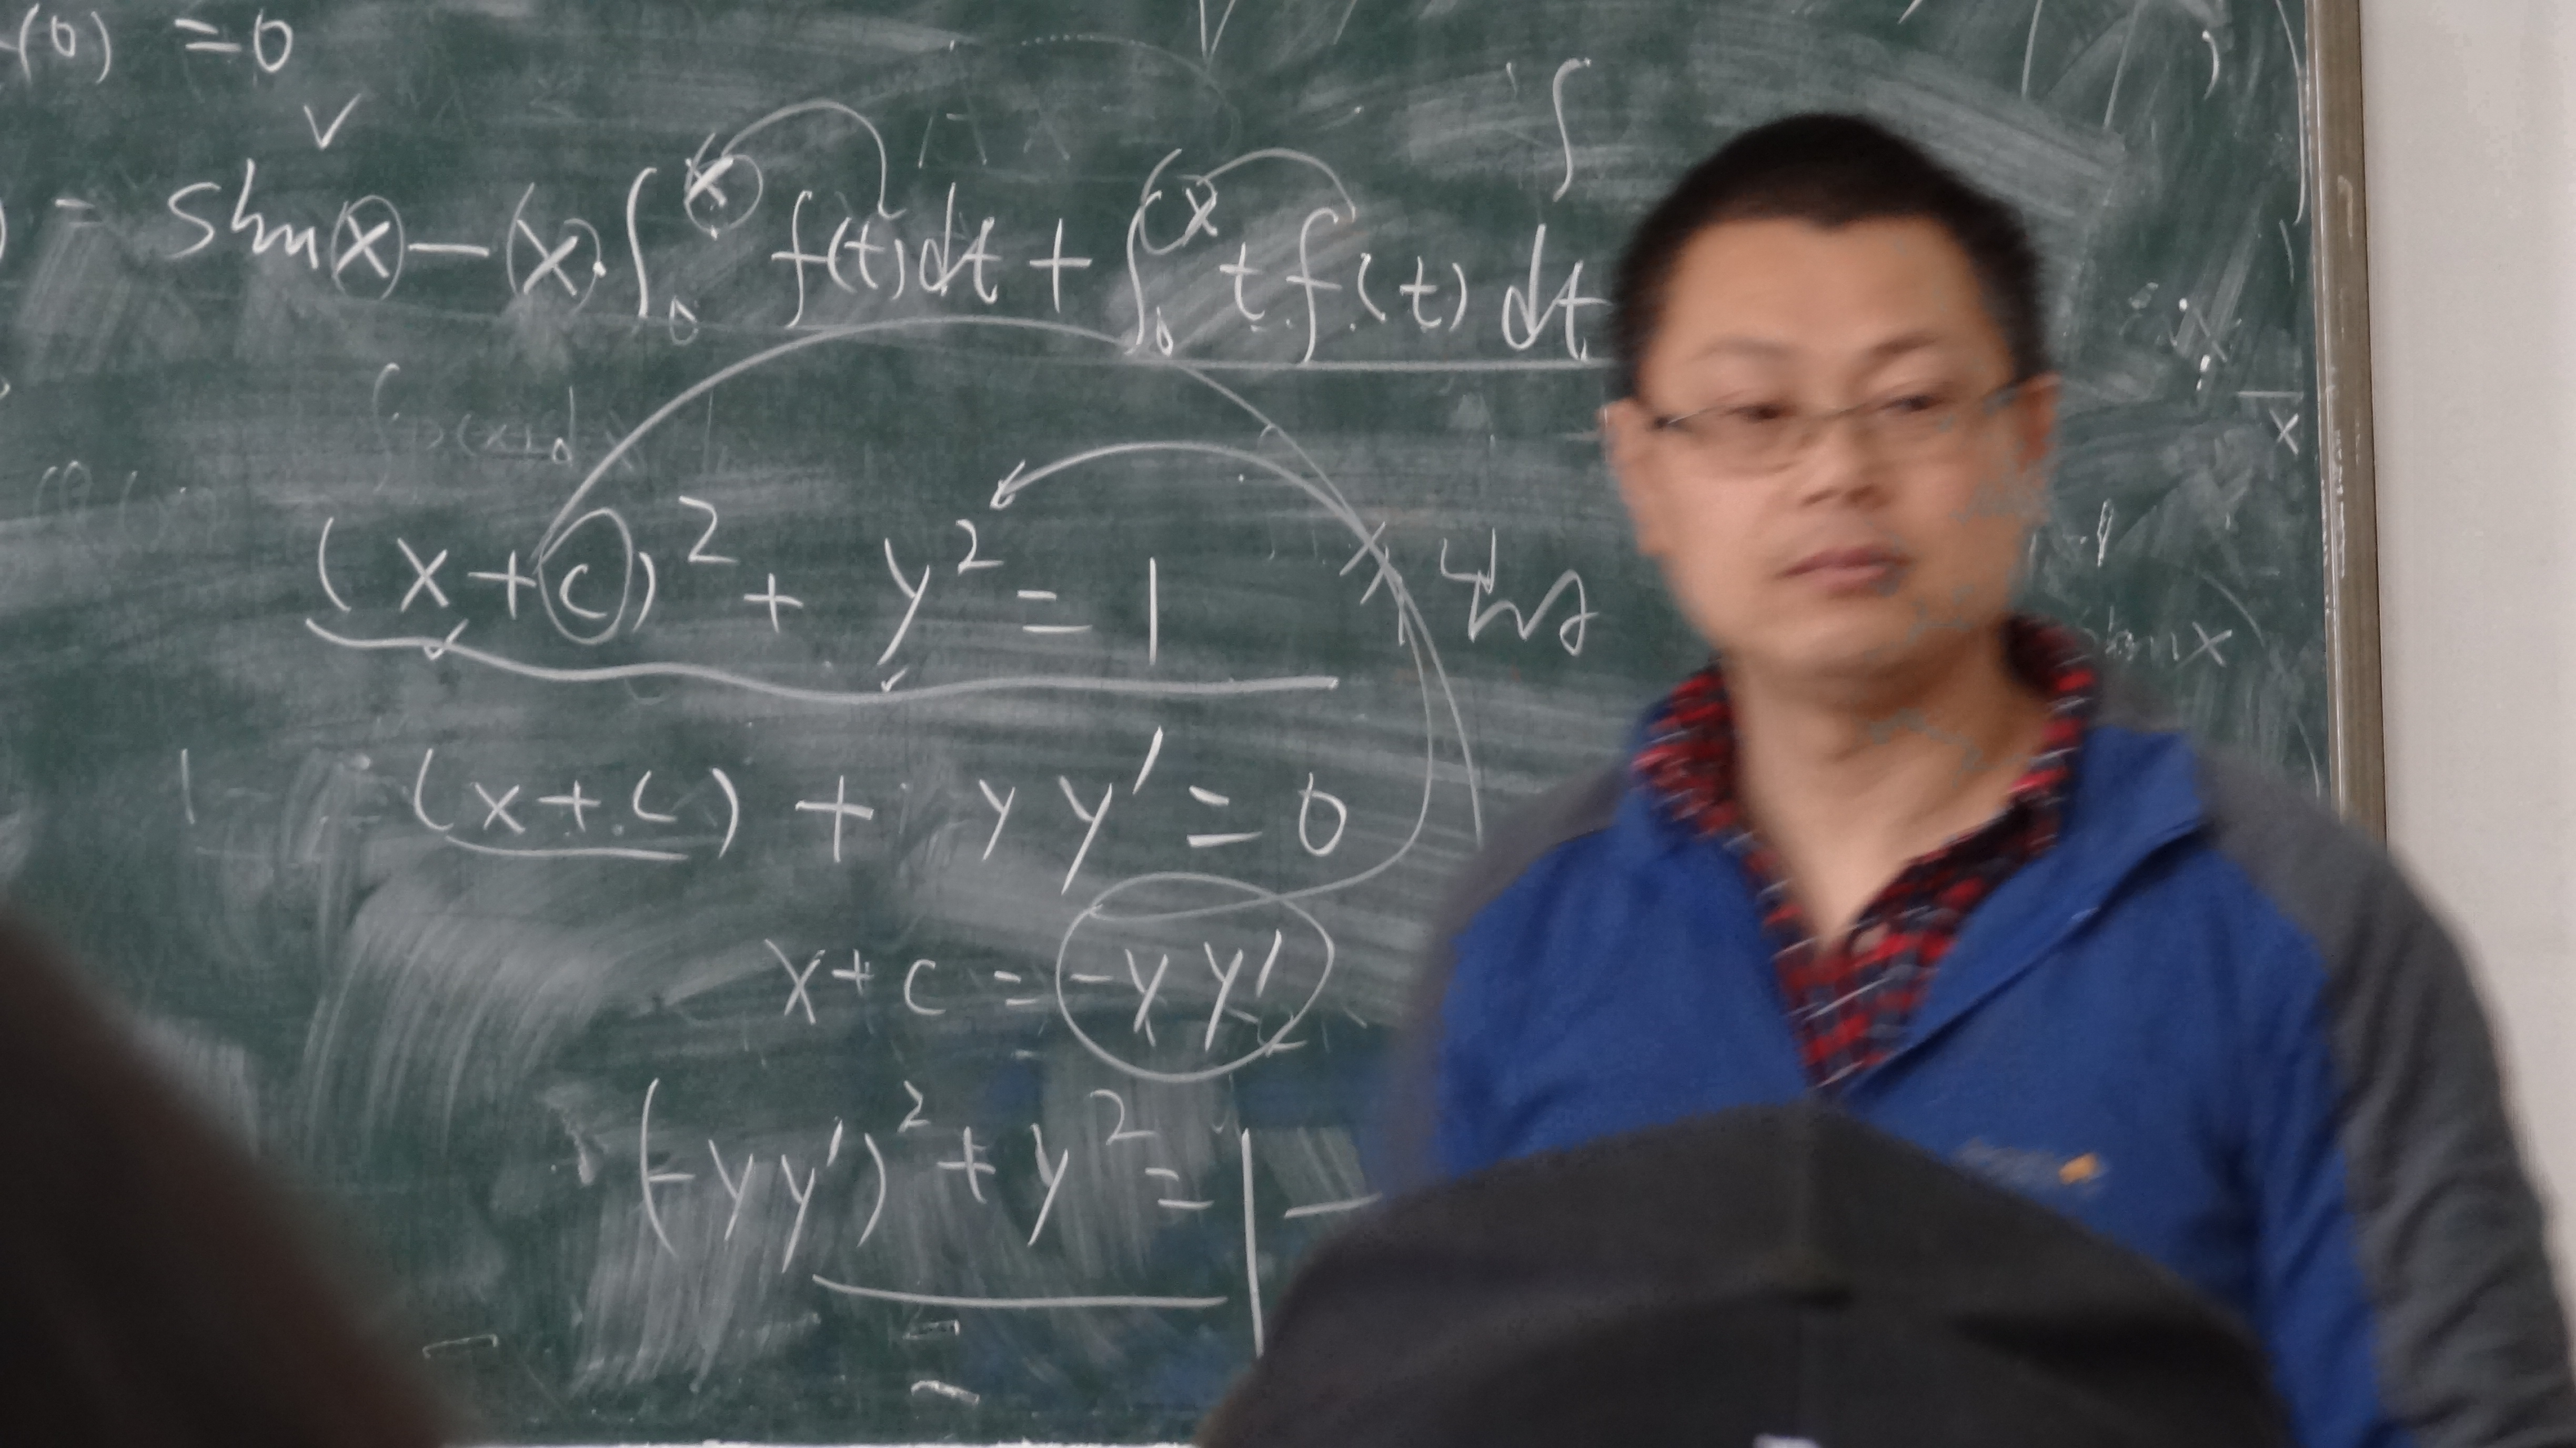 (0) = 0
) = sin x - x · ∫₀ˣ f(t)dt + ∫₀ˣ t f(t) dt
(x+c)² + y² = 1
(x+c) + yy' = 0
x + c = -yy'
(-yy')² + y² = 1 -